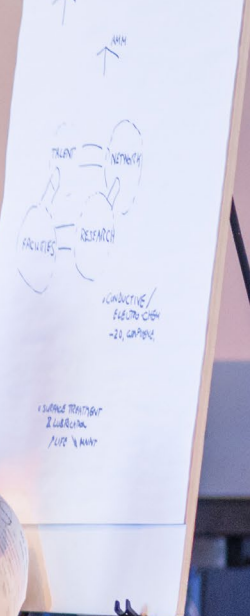 AMM
TALENT
NETWORK
FACILITIES
RESEARCH
CONDUCTIVE /
ELECTRO-CHEM
SURFACE TREATMENT
LUBRICATION
LIFE MAINT